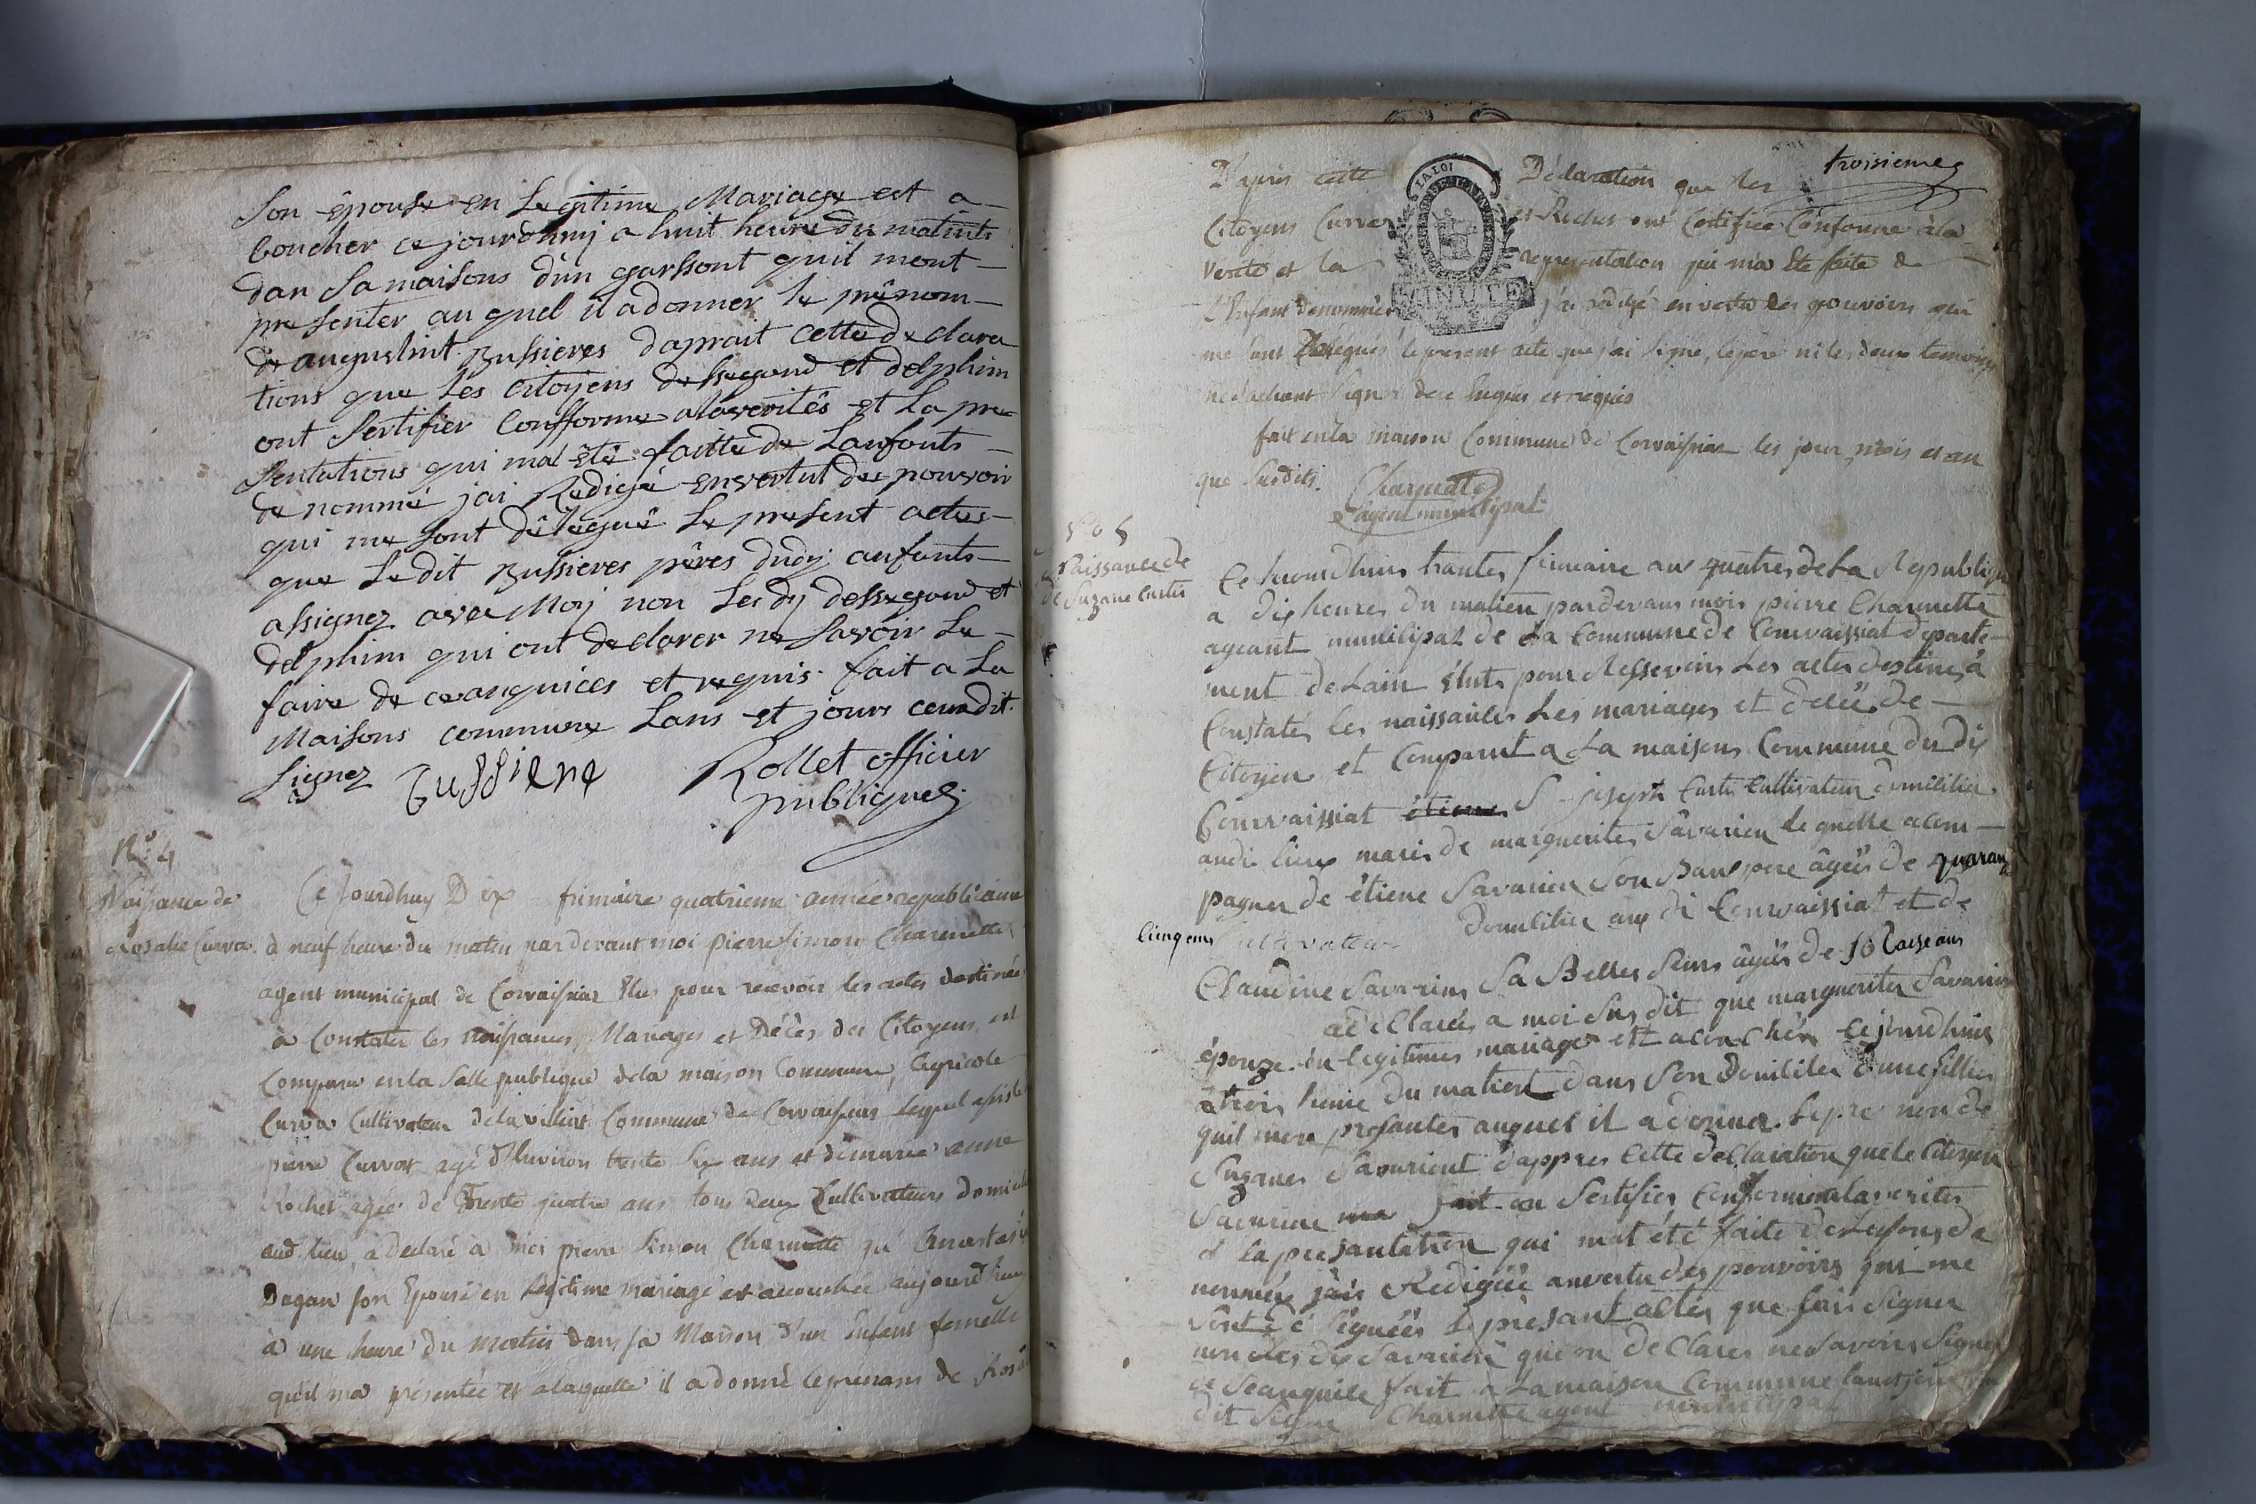 Son épouse en Legitime Mariage est a
Coucher ce jourdhuij a huit heure du matints
dan Sa maisons d'un garssont quil mont
presenter au quel il a donner le prénom
de augustint Bussieres daprait cette declara
tions que Les Citoyens dessegond et delphim
ont Sertifier Confforme alaverités et La pre
Sentations qui mat été faitte de Lanfants
de nommé jai Redigé envertut des pouvoir
qui me Sont délégué Le present actes
que Le dit Bussieres péres dudij anfants
assignez avec Moij non Les dij dessegond et
delphim qui ont declarer ne Savoir Le
faire de ce anquices et requis. fait a La
Maisons commune Lans et jours ceusdit.
Signez Bussiere Rollet officier
publiques
N.º 4
Naissance de
Rosalie Curva
Ce Jourdhuy Dix frimaire quatrieme année republicaine
à neuf heure du matin pardevant moi pierre Simon Charmette
agent municipal de Corvaissiat Elus pour recevoir les actes destinées
à Constater les naissances, Mariages et Décès des Citoyens, est
Comparu en la Salle publique de la maison Commune,
Curva Cultivateur de la Commune de Corvaissiat lequel assisté
pierre Curvat agé d'Environ trente Six ans et de anne
Rochet agée de Trente quatre ans tous deux Cultivateurs domicilié
aud. lieu, a declaré à moi pierre Simon Charmette qu'
Dagan son Epouse en légitime mariage est accouchée aujourdhuy
à une heure du matin dans sa Maison d'un Enfant femelle
qu'il ma présentée et alaquelle il a donné le prénom de Rosa
troisieme
D'après cette Déclaration que les
Citoyens Curva et Rochet ont Certifiée Conforme à la
Verité et la representation qui ma Eté faite de
l'Enfant denommée j'ai rédigé en vertu des pouvoirs qui
me Sont Délégués le present acte que j'ai Signé, le pere ni les deux temoins
ne Sachant Signer de ce Enquis et requis
fait en la maison Commune de Corvaissiat les jour, mois et an
que Susdits. Charmette
agent municipal
N.º 5
Naissance de
de Suzane Curte
Ce Jourdhuis trantes frimaire an quatres de La République
a dix heures du matien pardevans mois pierre Charmette
ageant munilipal de La Commune de Courvaissiat departe
ment de Lain Eluts pour Ressevoirs Les actes destines à
Constatés les naissances Les mariages et de
Citoyen et Comparut a La maisons Commune du dis
Courvaissiat joseph Curte Cultivateur domicilier
audi lieux maris de marguerites Savarien lequelle acom
pagner de étiene Savarien Son Baux pere âgés de quaran
cinq ans Cultivateur Domilier au di Courvaissiat et de
Claudine Savarins Sa Belles Seurs âgés de ans
a déClarés a moi Sus dit que marguerites Savarins
épouze en legitimes mariages est acouchér Ce jourdhuis
a trois heure du matient dans Son Domicile d'une filles
quil mon presantes auquel il a donner Le pre non de
Suzanes Savarient d'appres Cette déClaration que le Citoyen
Savarine on Sertifies Conforme a la verites
et la presantation qui mat été faite de Lenfans de
nommée jais Redigée anvertu des pouvoirs qui me
Sont de léguées Le présant actes que jais Signer
non Les dis Savarient qui on déClarer ne Savoirs Signer
de Seanquile fait a La maison Commune
dit Signé Charmette agent municipal